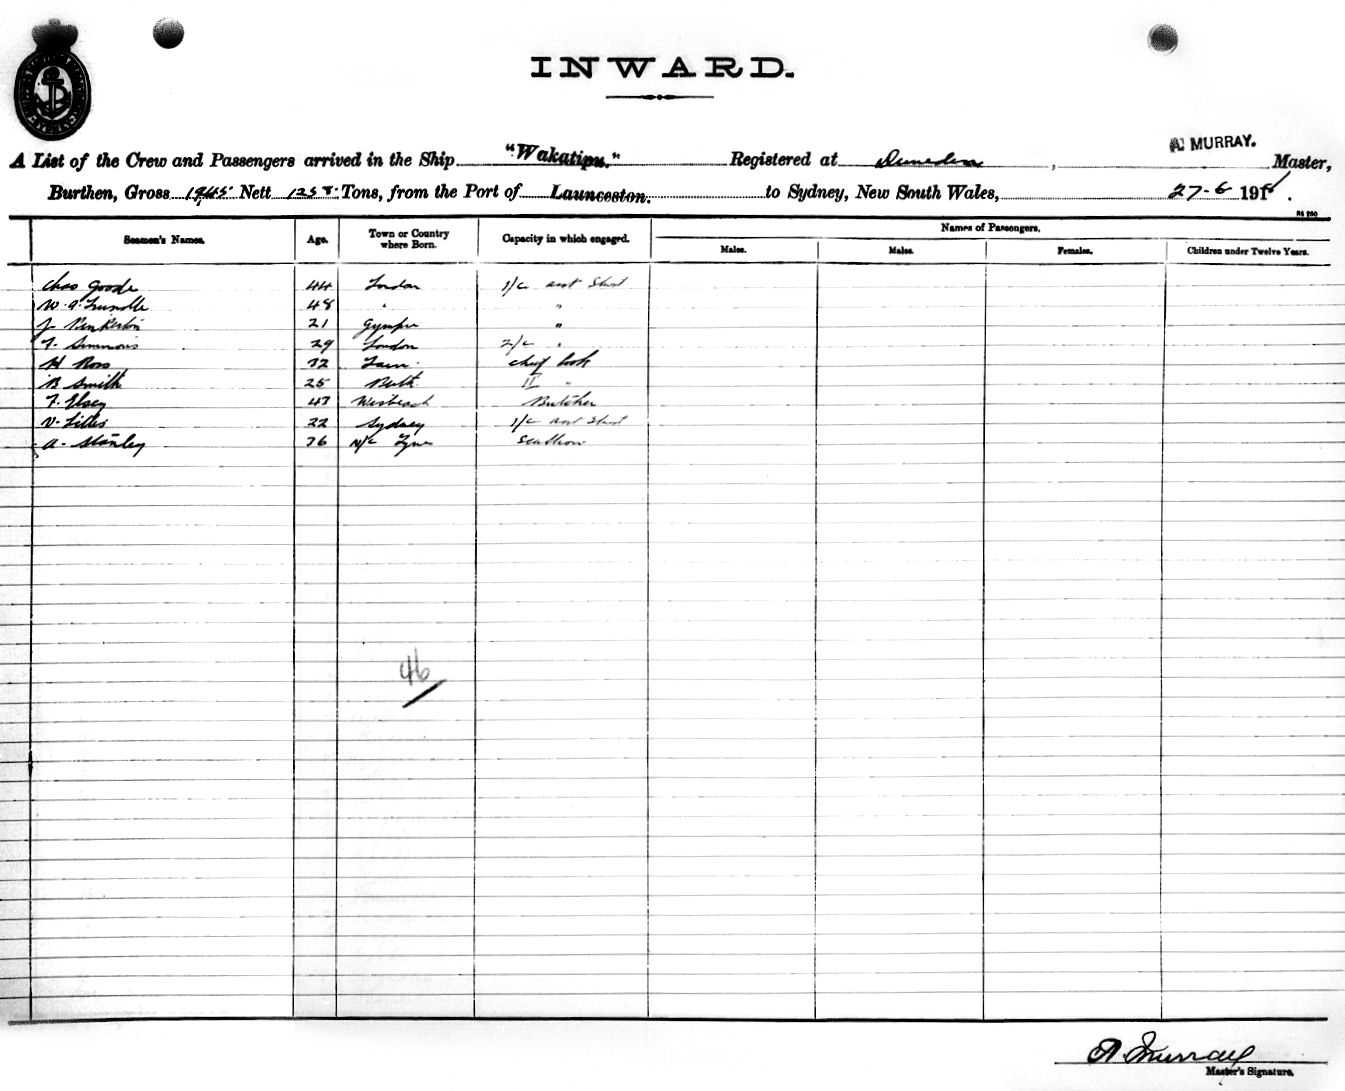 INWARD.
A List of the Crew and Passengers arrived in the Ship "Wakatipu." Registered at Dunedin, A. MURRAY. Master,
Burthen, Gross 1945 Nett 1258 Tons, from the Port of Launceston. to Sydney, New South Wales, 27-6 191
Seamen's Names. Age. Town or Country where Born. Capacity in which engaged. Names of Passengers.
Males. Males. Females. Children under Twelve Years.
Chas Goode 44 London 1/c asst Stwd
W. A. Trundle 48 " "
J. Pinkerton 21 Gympie "
F. Simmons 29 London 2/c "
H Ross 32 Tain Chief Cook
B Smith 25 Bath II "
F. Elsey 47 Wisbeach Butcher
V. 22 Sydney 1/c asst Stwd
A. Stanley 26 N/c Tyne Scullion
46
A. Murray
Master's Signature.